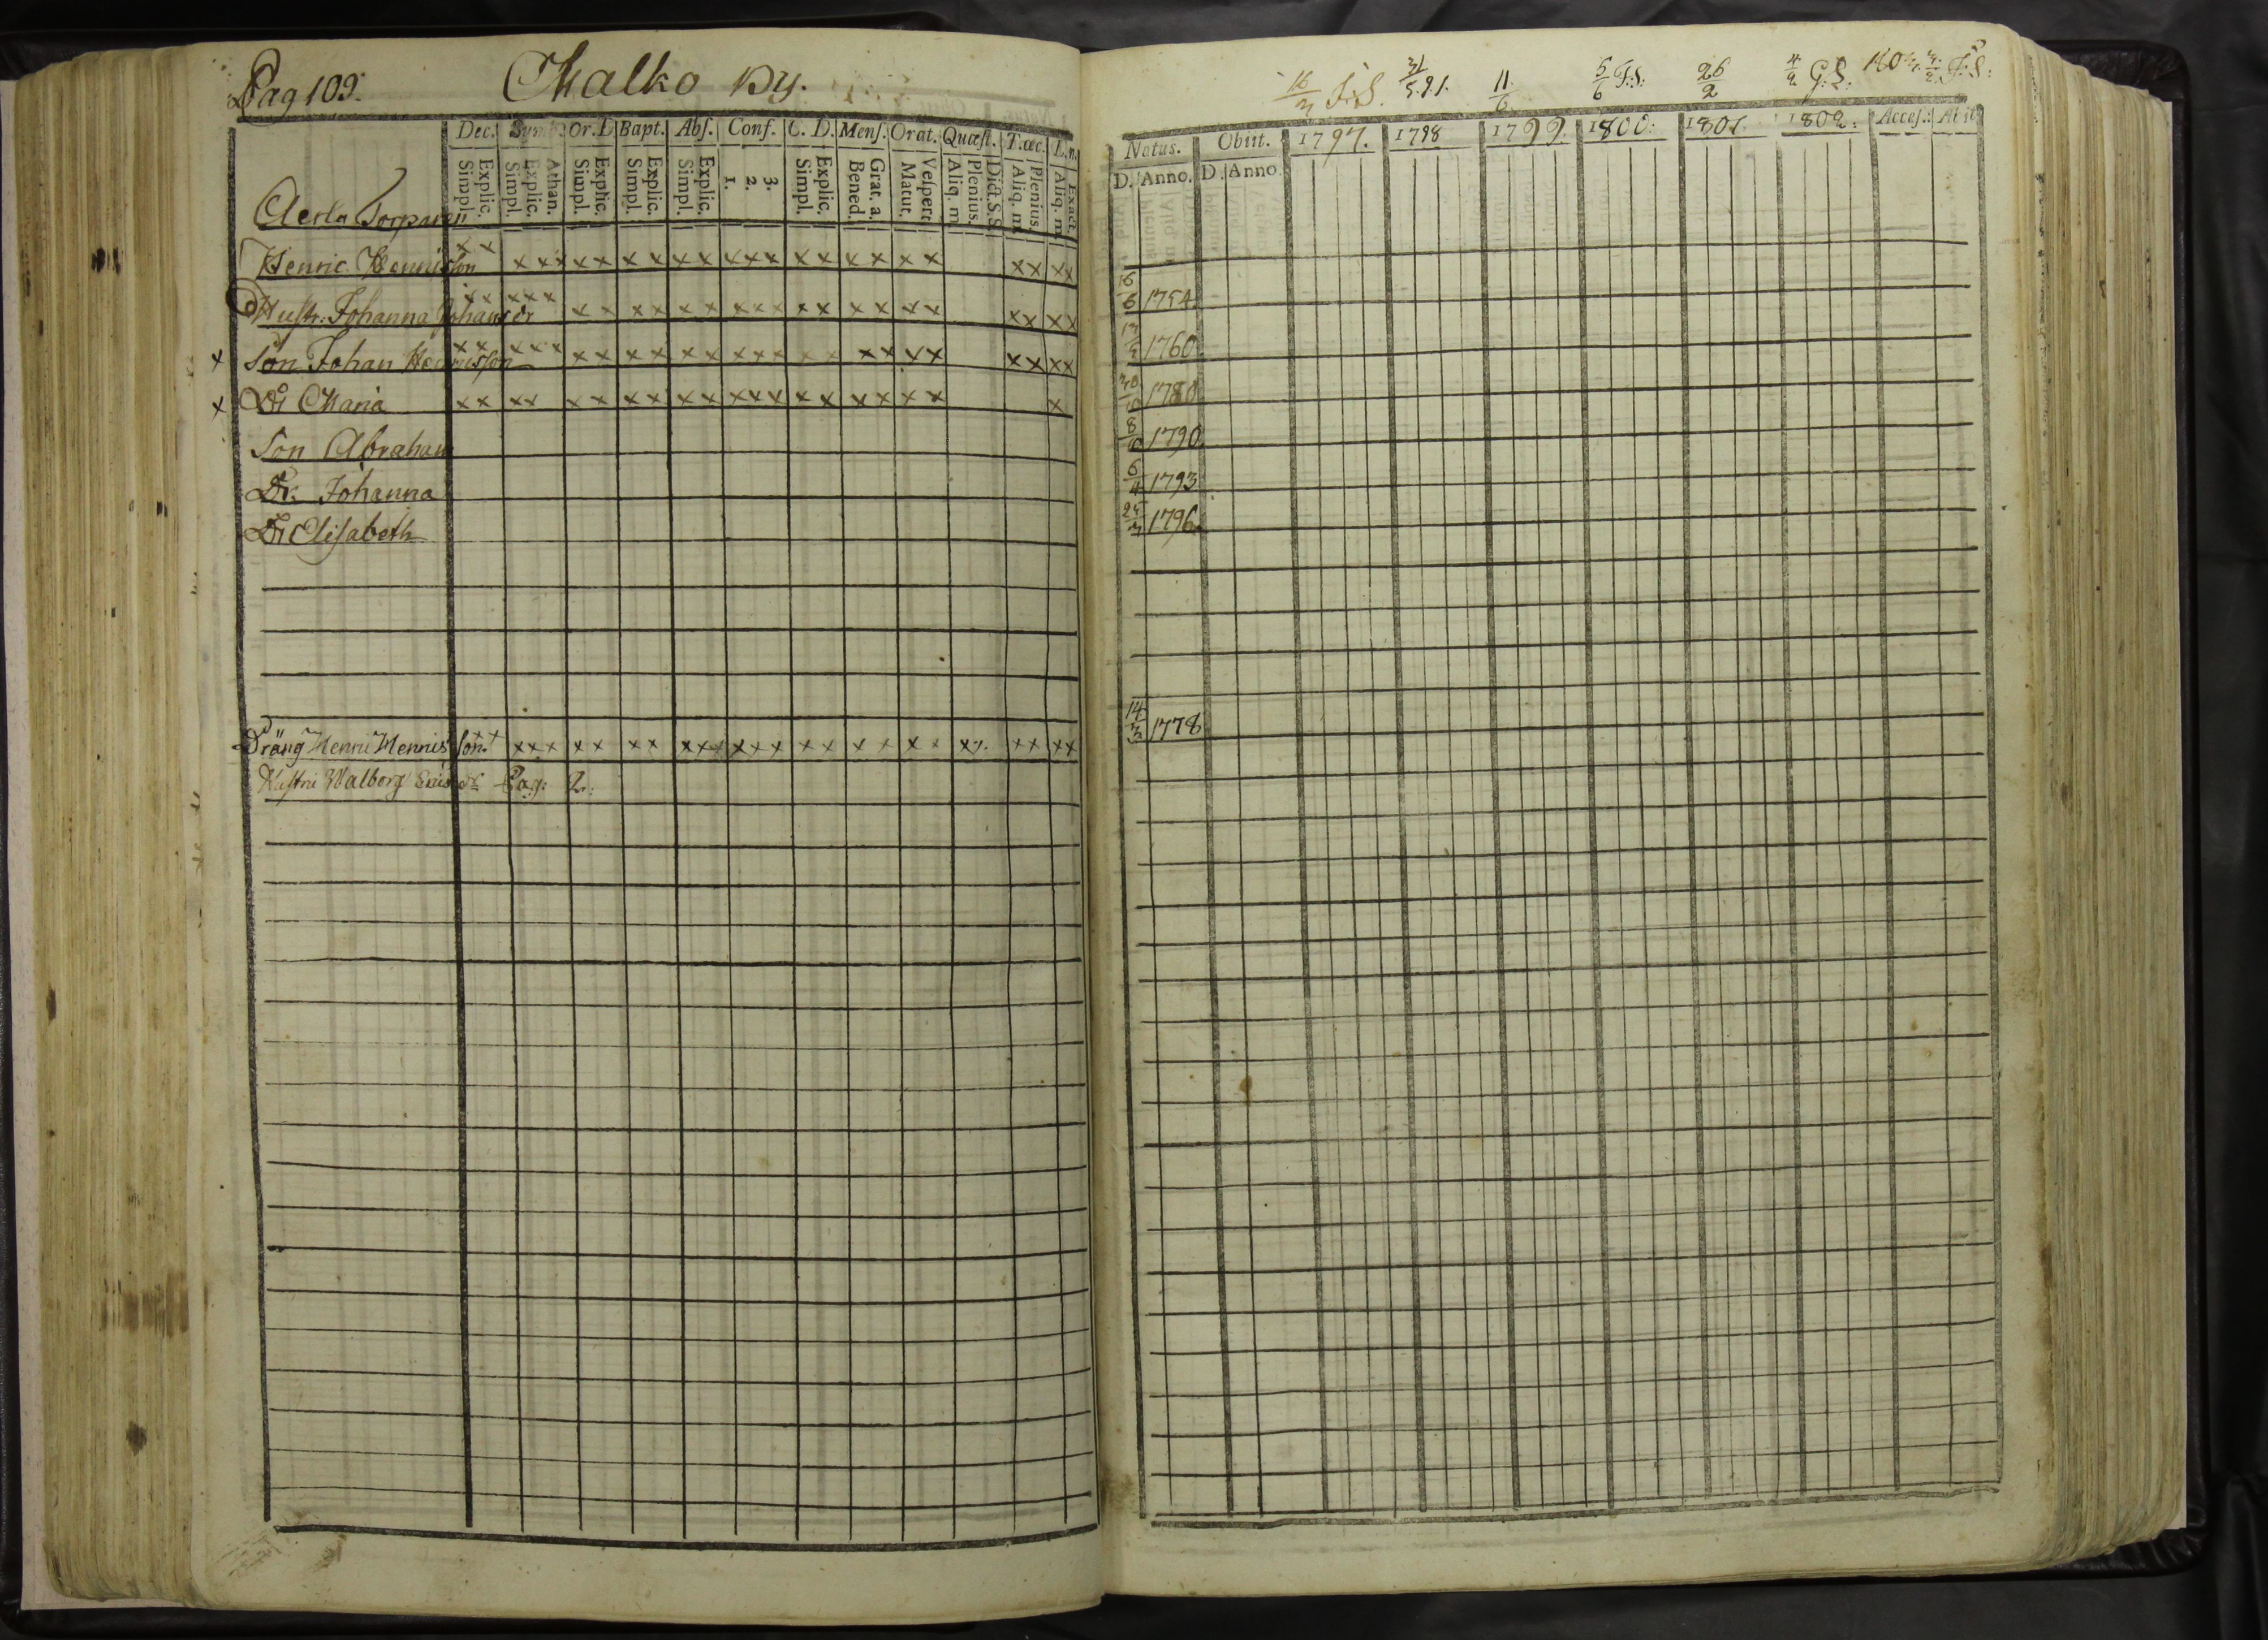 Pag 109. Malko By.
Dec. Symb. Or. D. Bapt. Abſ. Conf. C. D. Menſ. Orat. Quæſt. T. œc. L. n.
Explic. Simpl. Athan. Explic. Simpl. Explic. Simpl. Explic. Simpl. Explic. Simpl. 3. 2. 1. Explic. Simpl. Grat. a. Bened. Veſpert. Matut. Dict. S. S. Plenius. Aliq. m. Plenius. Aliq. m. Exact. Aliq. m.
Aerla Torparen
Henric Henrisson x x x x x x x x x x x x x x x x x x x x x x x x x x
Hustr: Johanna Johansdr x x x x x x x x x x x x x x x x x x x x x x x x x x
x Son Johan Henrisson x x x x x x x x x x x x x x x x x x x x x x x x x x
x Dr Maria x x x x x x x x x x x x x x x x x x x x x x
Son Abraham
Dr: Johanna
Dr Elisabeth
Dräng Henric Henrisson x x x x x x x x x x x x x x x x x x x x x x x x x x x
Hustru Walborg Pag: 2:
16/3 F:S. 31/5 91. 11/6 5/6 F:S: 26/2 4/2 G:S: 1803 3/2 F:S:
Natus. Obiit. 1797. 1798 1799. 1800: 1801. 1802: Acceſ.: Abiit
D. Anno. D. Anno
16/6 1754
13/3 1760
30/10 1780
8/10 1790
6/4 1793
25/3 1796
14/3 1778